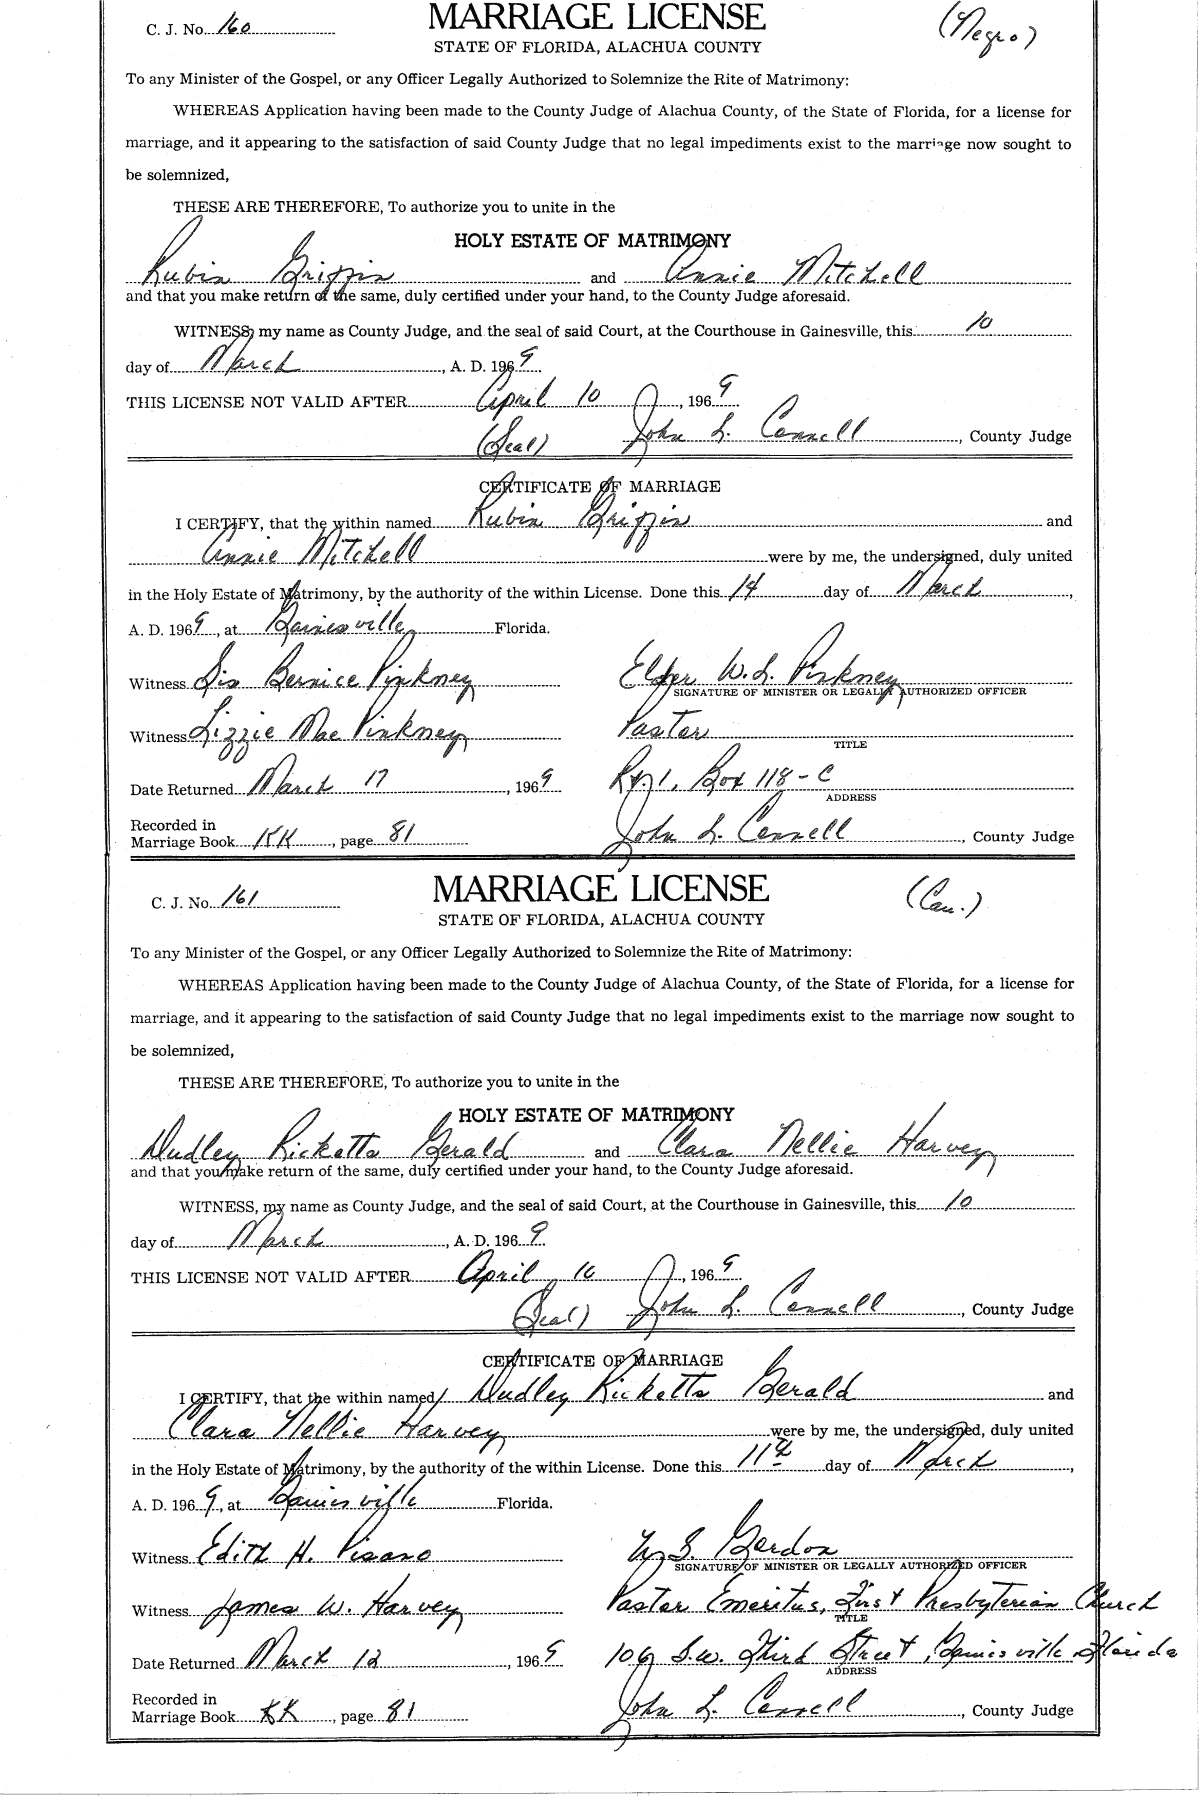 C. J. No. 160 MARRIAGE LICENSE (Negro)
STATE OF FLORIDA, ALACHUA COUNTY
To any Minister of the Gospel, or any Officer Legally Authorized to Solemnize the Rite of Matrimony:
WHEREAS Application having been made to the County Judge of Alachua County, of the State of Florida, for a license for
marriage, and it appearing to the satisfaction of said County Judge that no legal impediments exist to the marriage now sought to
be solemnized,
THESE ARE THEREFORE, To authorize you to unite in the
HOLY ESTATE OF MATRIMONY
Rubin Griffin and Annie Mitchell
and that you make return of the same, duly certified under your hand, to the County Judge aforesaid.
WITNESS, my name as County Judge, and the seal of said Court, at the Courthouse in Gainesville, this 10
day of March, A. D. 1969
THIS LICENSE NOT VALID AFTER April 10, 1969
(Seal) John L. Connell, County Judge
CERTIFICATE OF MARRIAGE
I CERTIFY, that the within named Rubin Griffin and
Annie Mitchell were by me, the undersigned, duly united
in the Holy Estate of Matrimony, by the authority of the within License. Done this 14 day of March,
A. D. 1969, at Gainesville Florida.
Witness Sis Bernice Pinkney Elder W. L. Pinkney
SIGNATURE OF MINISTER OR LEGALLY AUTHORIZED OFFICER
Witness Lizzie Mae Pinkney Pastor
TITLE
Date Returned March 17, 1969 Rt. 1, Box 118-C
ADDRESS
Recorded in
Marriage Book KK, page 81 John L. Connell, County Judge
C. J. No. 161 MARRIAGE LICENSE (Cau.)
STATE OF FLORIDA, ALACHUA COUNTY
To any Minister of the Gospel, or any Officer Legally Authorized to Solemnize the Rite of Matrimony:
WHEREAS Application having been made to the County Judge of Alachua County, of the State of Florida, for a license for
marriage, and it appearing to the satisfaction of said County Judge that no legal impediments exist to the marriage now sought to
be solemnized,
THESE ARE THEREFORE, To authorize you to unite in the
HOLY ESTATE OF MATRIMONY
Dudley Ricketts Gerald and Clara Nellie Harvey
and that you make return of the same, duly certified under your hand, to the County Judge aforesaid.
WITNESS, my name as County Judge, and the seal of said Court, at the Courthouse in Gainesville, this 10
day of March, A. D. 1969
THIS LICENSE NOT VALID AFTER April 10, 1969
(Seal) John L. Connell, County Judge
CERTIFICATE OF MARRIAGE
I CERTIFY, that the within named Dudley Ricketts Gerald and
Clara Nellie Harvey were by me, the undersigned, duly united
in the Holy Estate of Matrimony, by the authority of the within License. Done this 11th day of March,
A. D. 1969, at Gainesville Florida.
Witness Edith H. Pisano U. S. Gordon
SIGNATURE OF MINISTER OR LEGALLY AUTHORIZED OFFICER
Witness James W. Harvey Pastor Emeritus, First Presbyterian Church
TITLE
Date Returned March 12, 1969 106 S.W. Third Street, Gainesville Florida
ADDRESS
Recorded in
Marriage Book KK, page 81 John L. Connell, County Judge